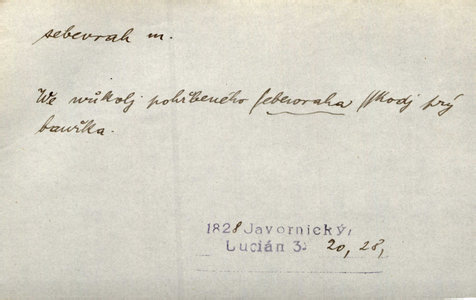 sebevrah m.
We wůkolj pohřbeného sebevraha sskodj prý
bauřka.
1828 Javornický,
Lucián 3. 20, 28,